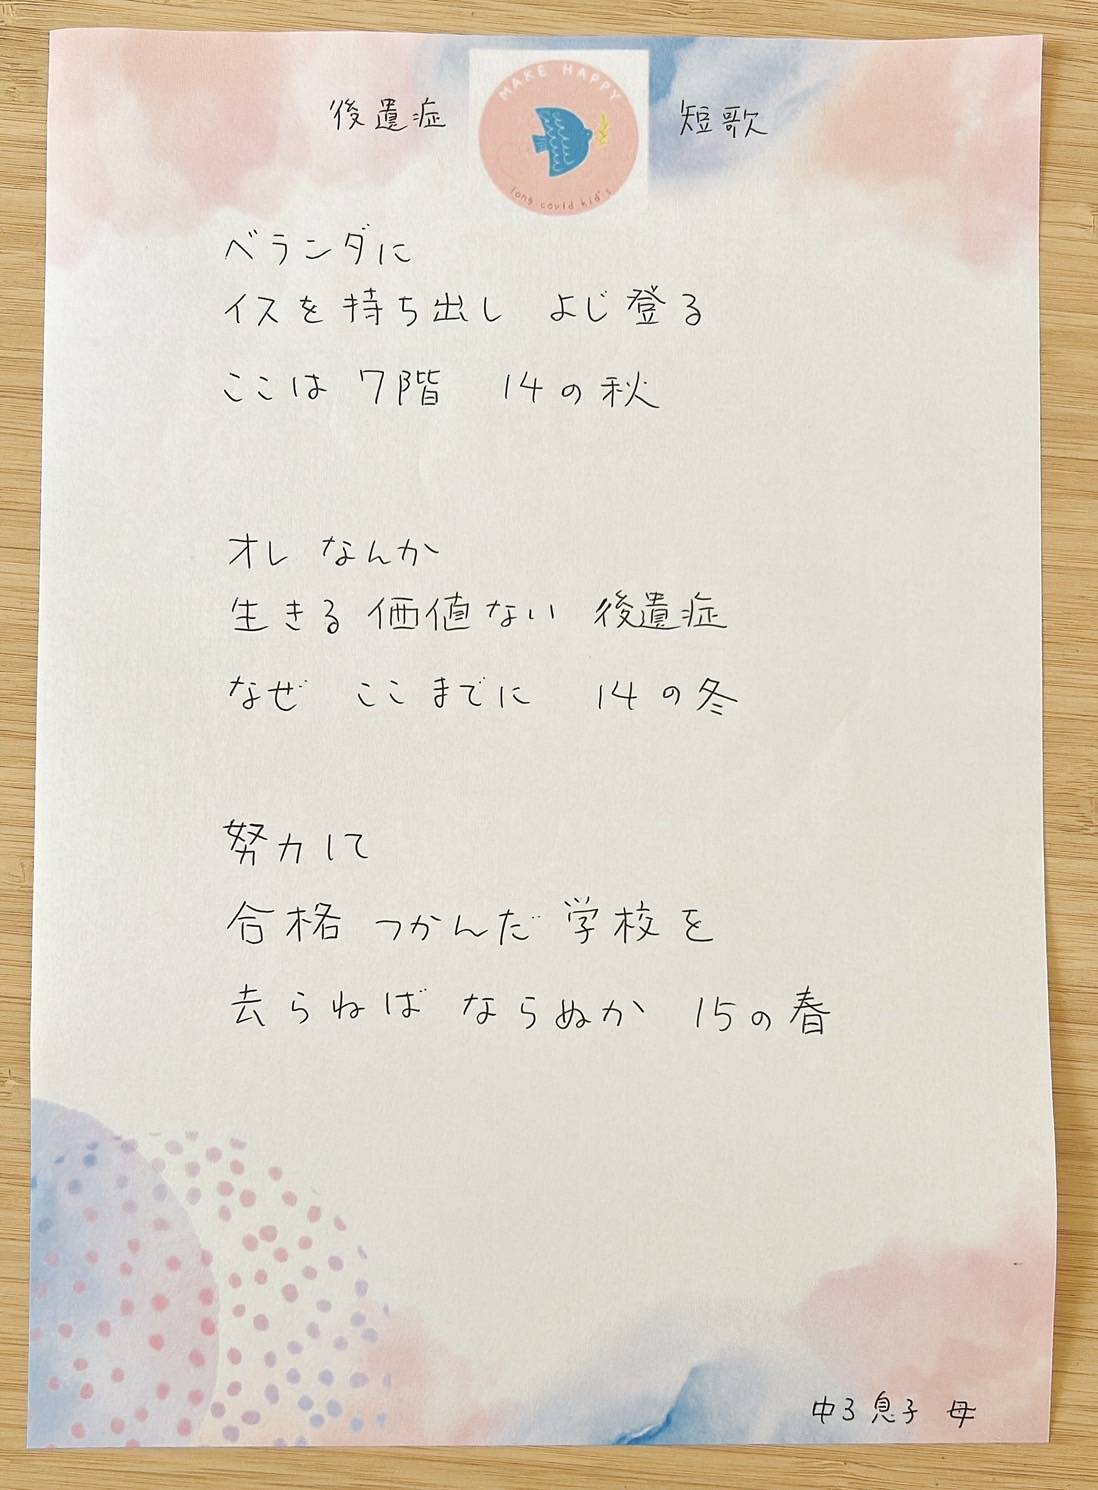 後遺症 短歌
MAKE HAPPY
long covid kid's
ベランダに
イスを持ち出し よじ登る
ここは 7階 14の秋
オレ なんか
生きる価値ない 後遺症
なぜ ここまでに 14の冬
努力して
合格つかんだ学校を
去らねば ならぬか 15の春
中3息子 母